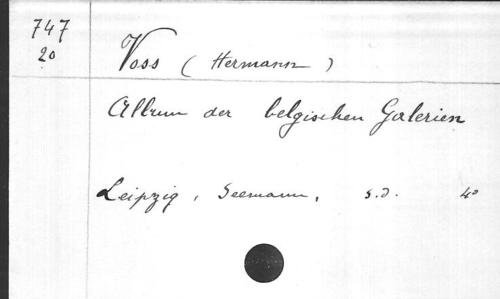 747
20
Voss (Hermann)
Album der belgischen Galerien
Leipzig, Seemann, s.d. 4°